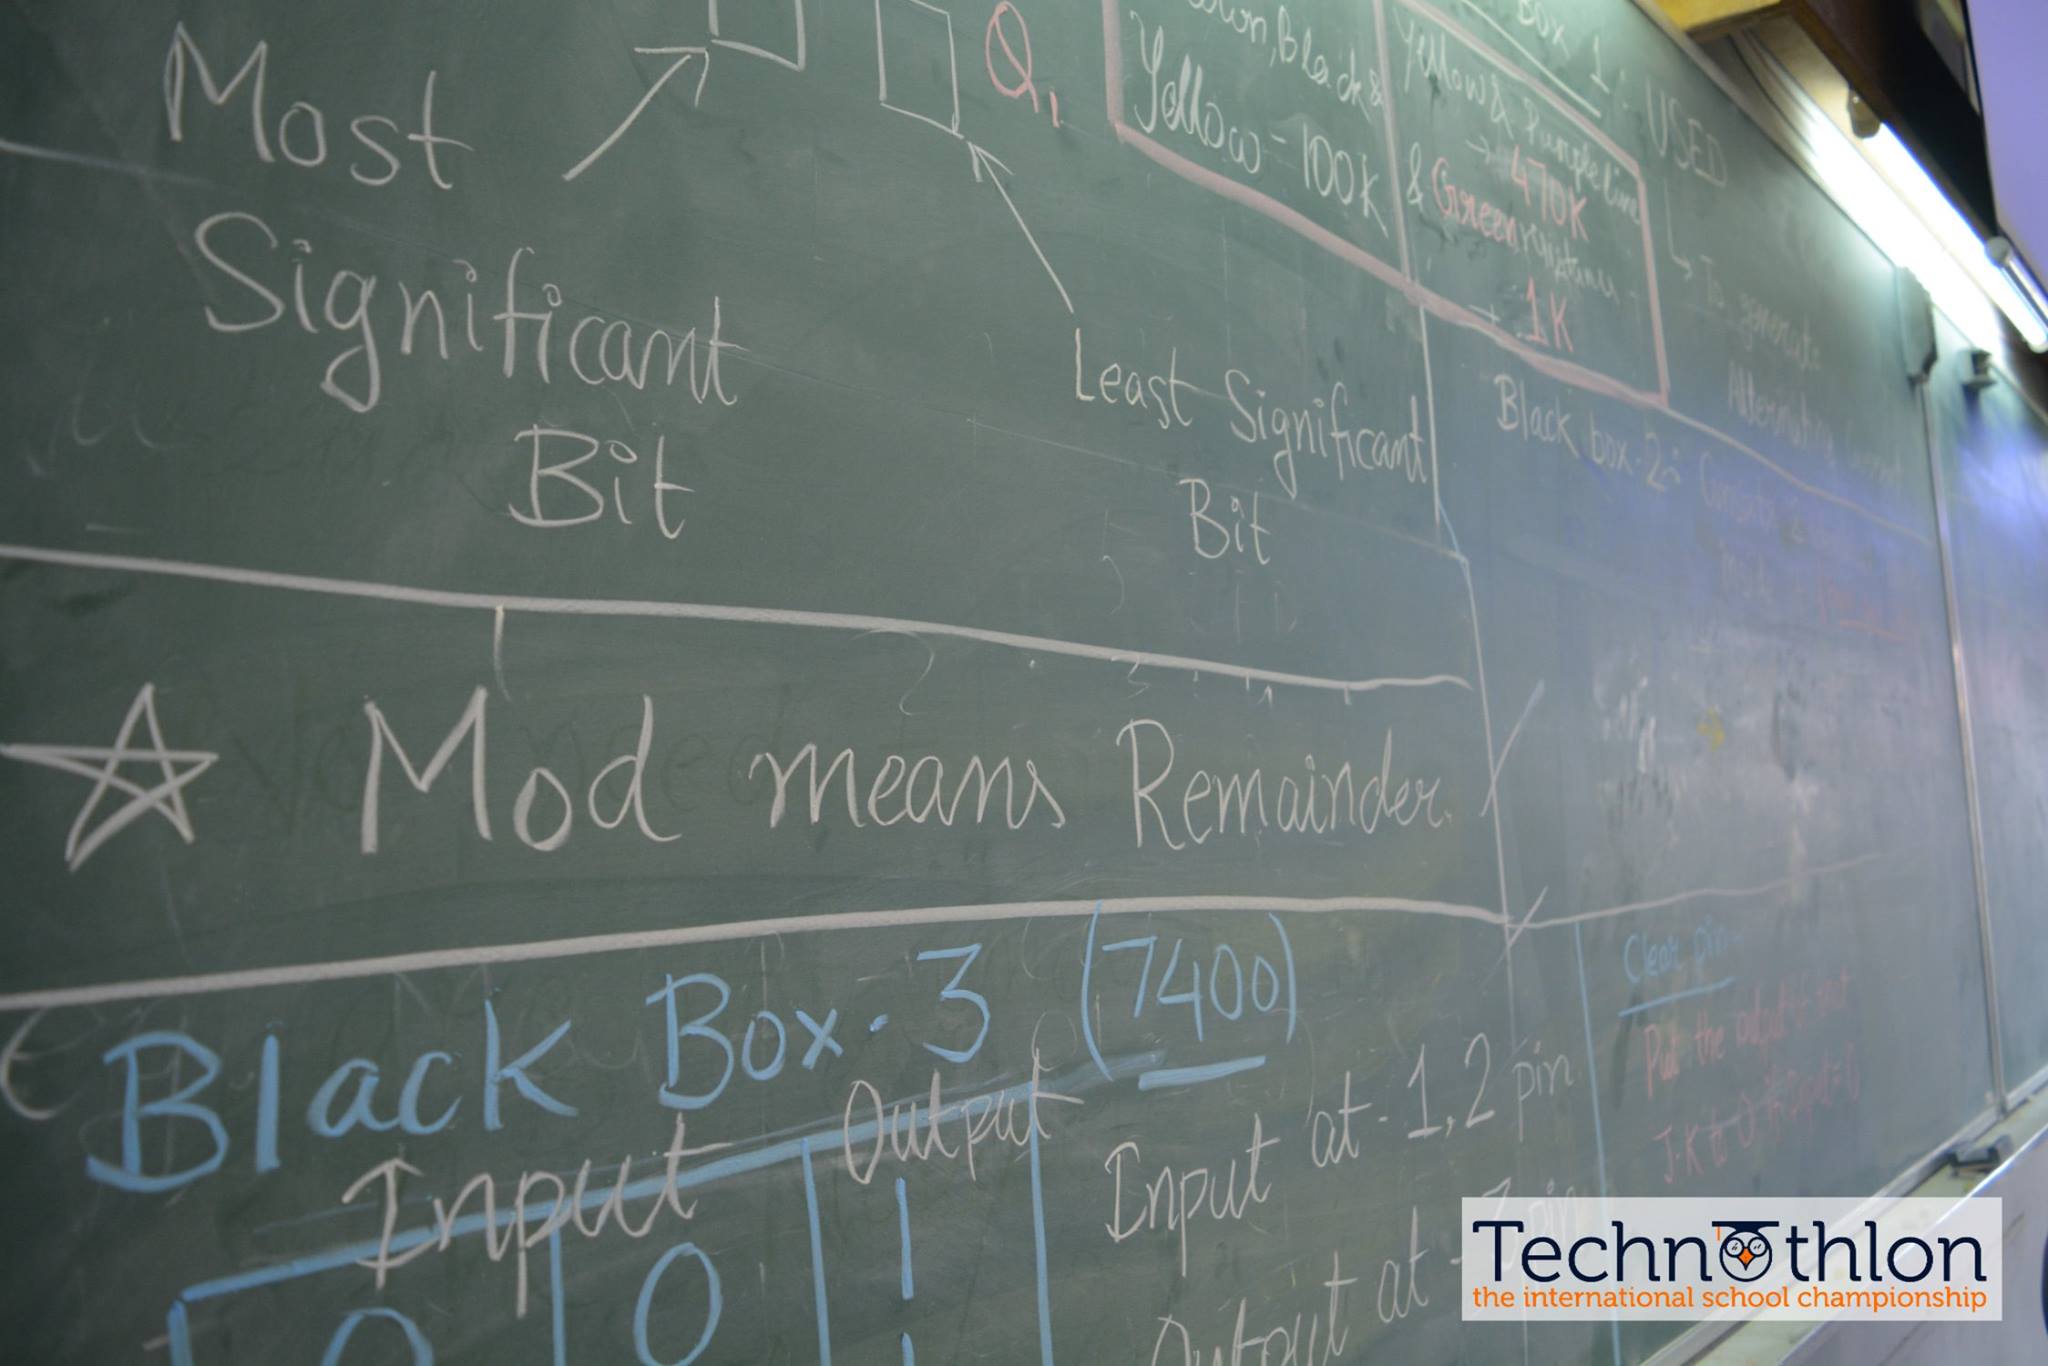 Most
Significant
Bit
Q1
Least Significant
Bit
Black &
Yellow - 100K
Yellow & Purple line
→ 470K
& Green
→ 1K
Box 1:-
USED
To generate
Alternating Current
Black box. 2:-
Mod means Remainder.
Black Box. 3 (7400)
Input
Output
0
0
1
Input at - 1,2 pin
Output at - 3 pin
Clear pin
Put the output
Technothlon
the international school championship